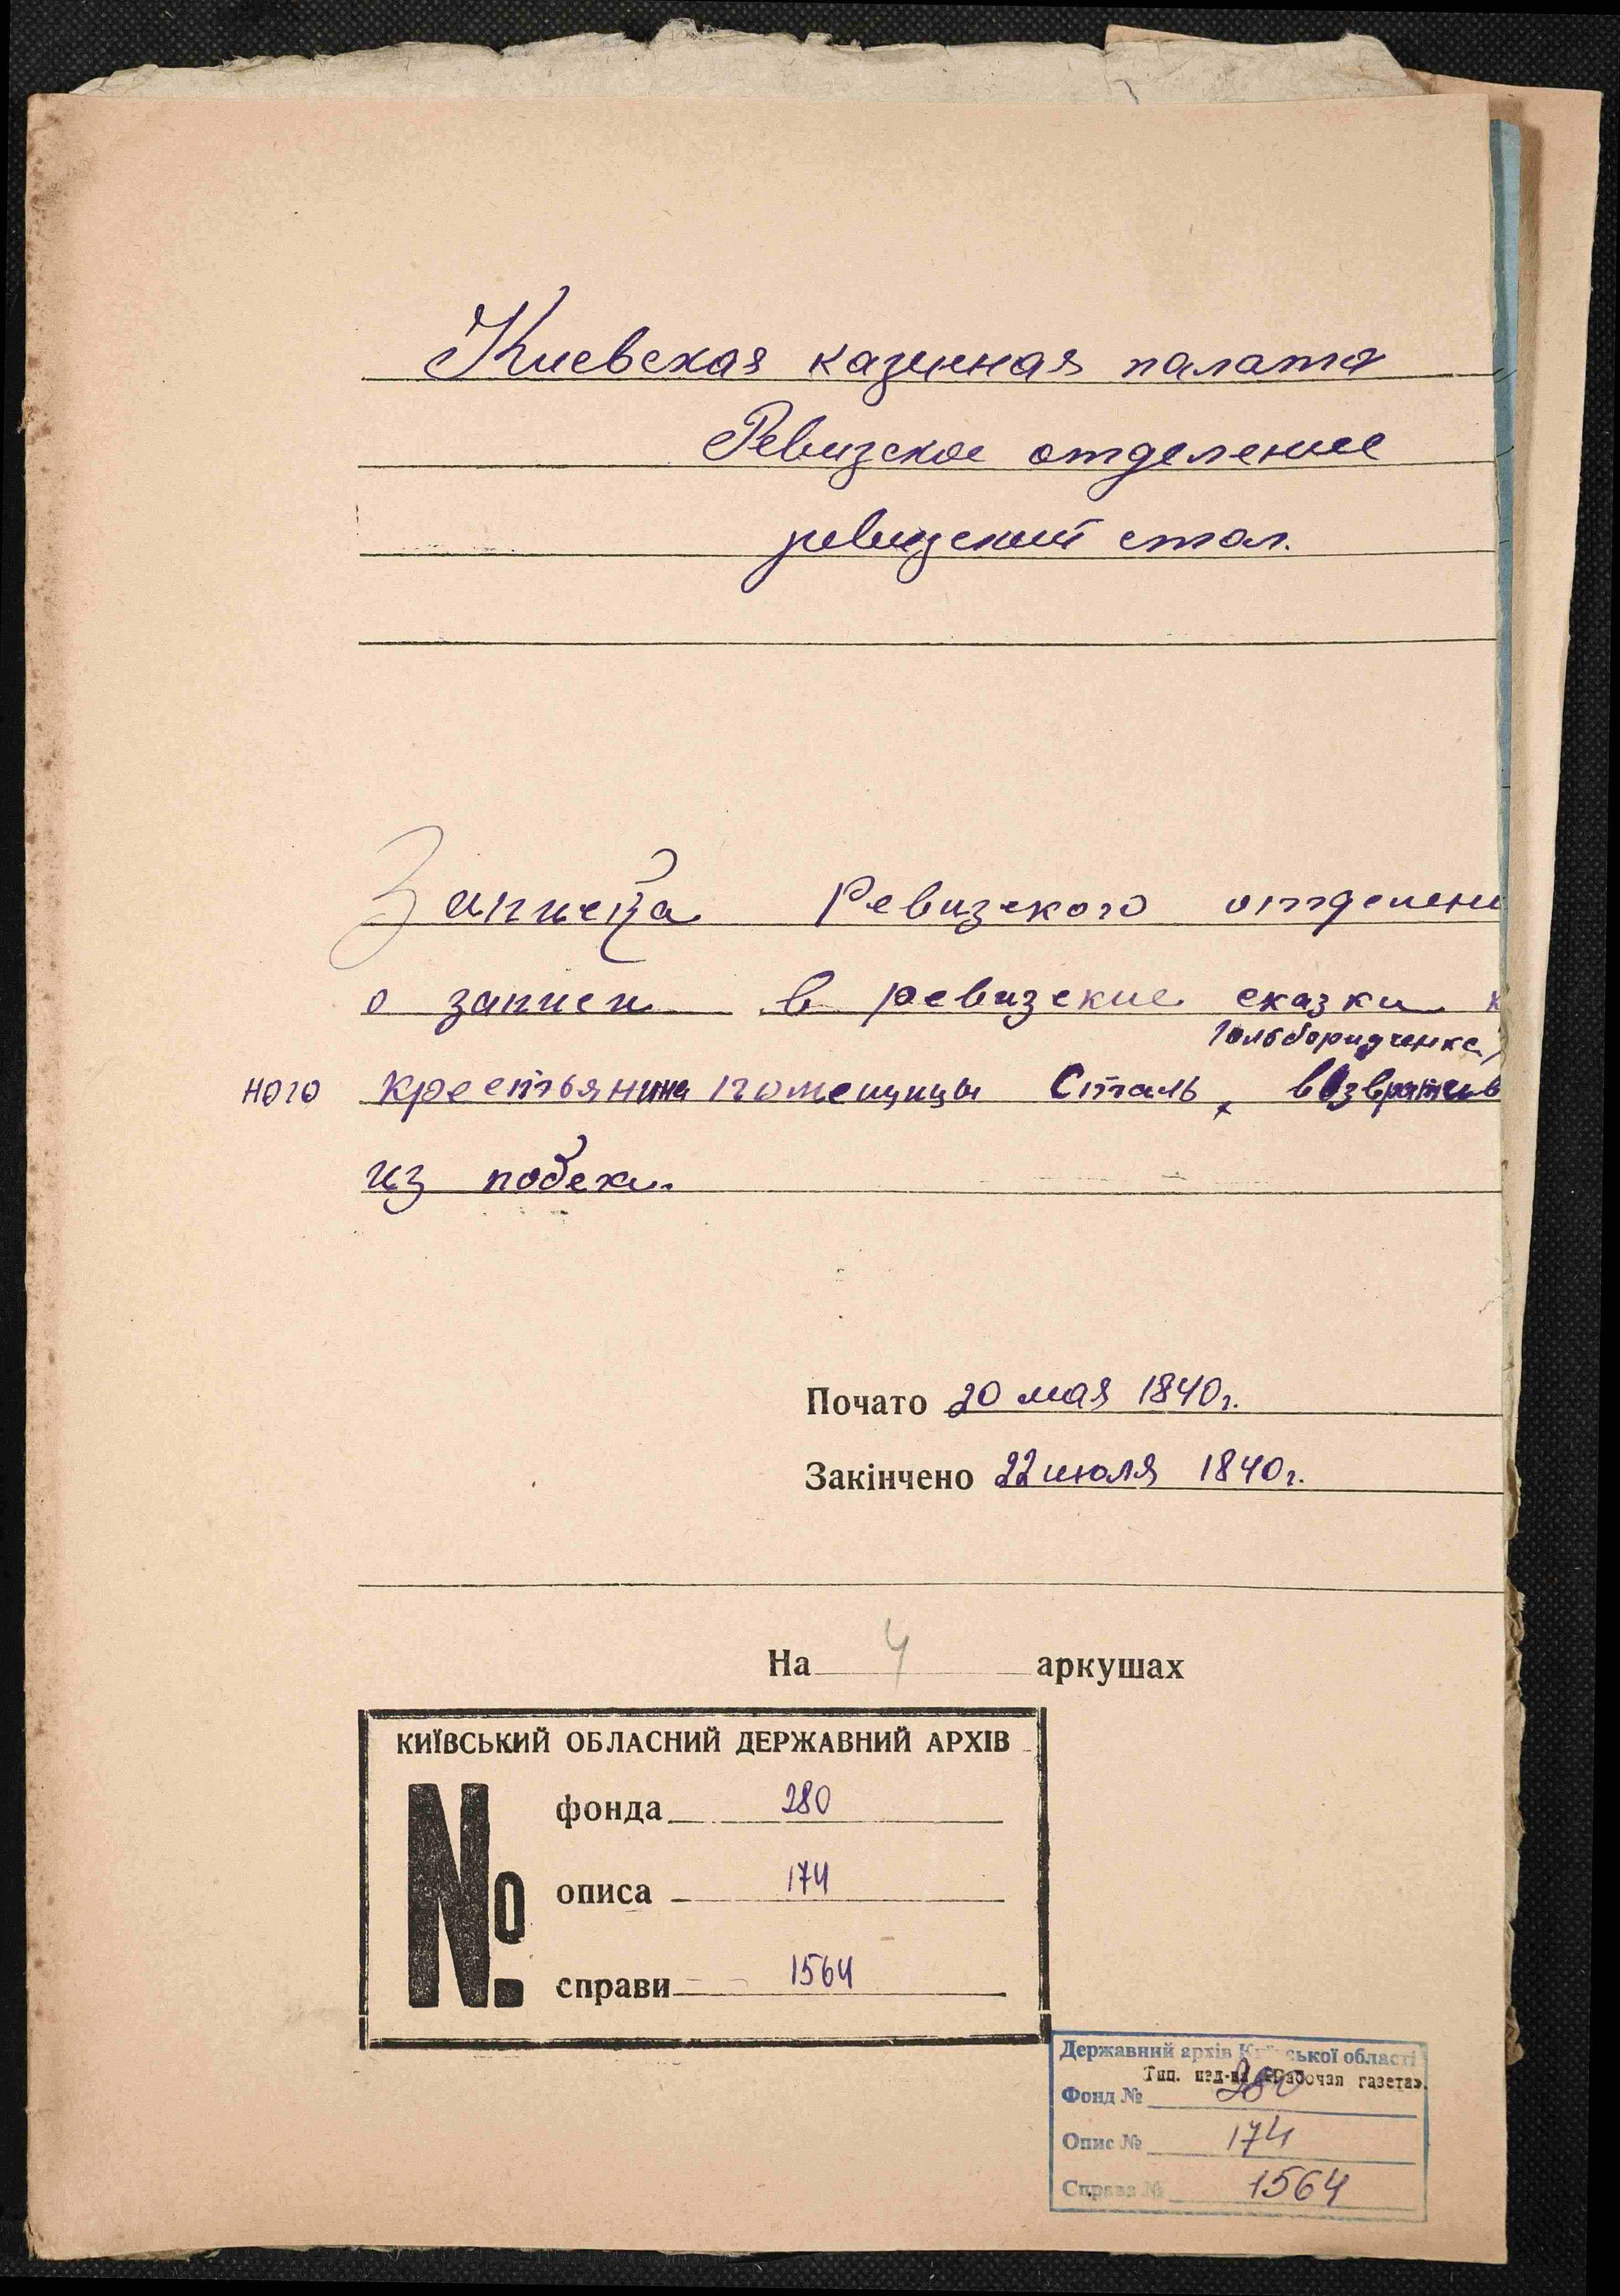 Киевская казенная палата
Ревизское отделение
ревизский стол.
Записка Ревизского отделени
о записи в ревизские сказки к
Гольборидченка,
ного крестьянина помещицы Сталь, возвратив
из побеги.
Почато 20 мая 1840г.
Закінчено 22 июля 1840г.
На 4 аркушах
КИЇВСЬКИЙ ОБЛАСНИЙ ДЕРЖАВНИЙ АРХІВ
№ фонда 280
описа 174
справи 1564
Державний архів Київської області
Тип. изд-ва «Рабочая газета».
Фонд № 280
Опис № 174
Справа № 1564